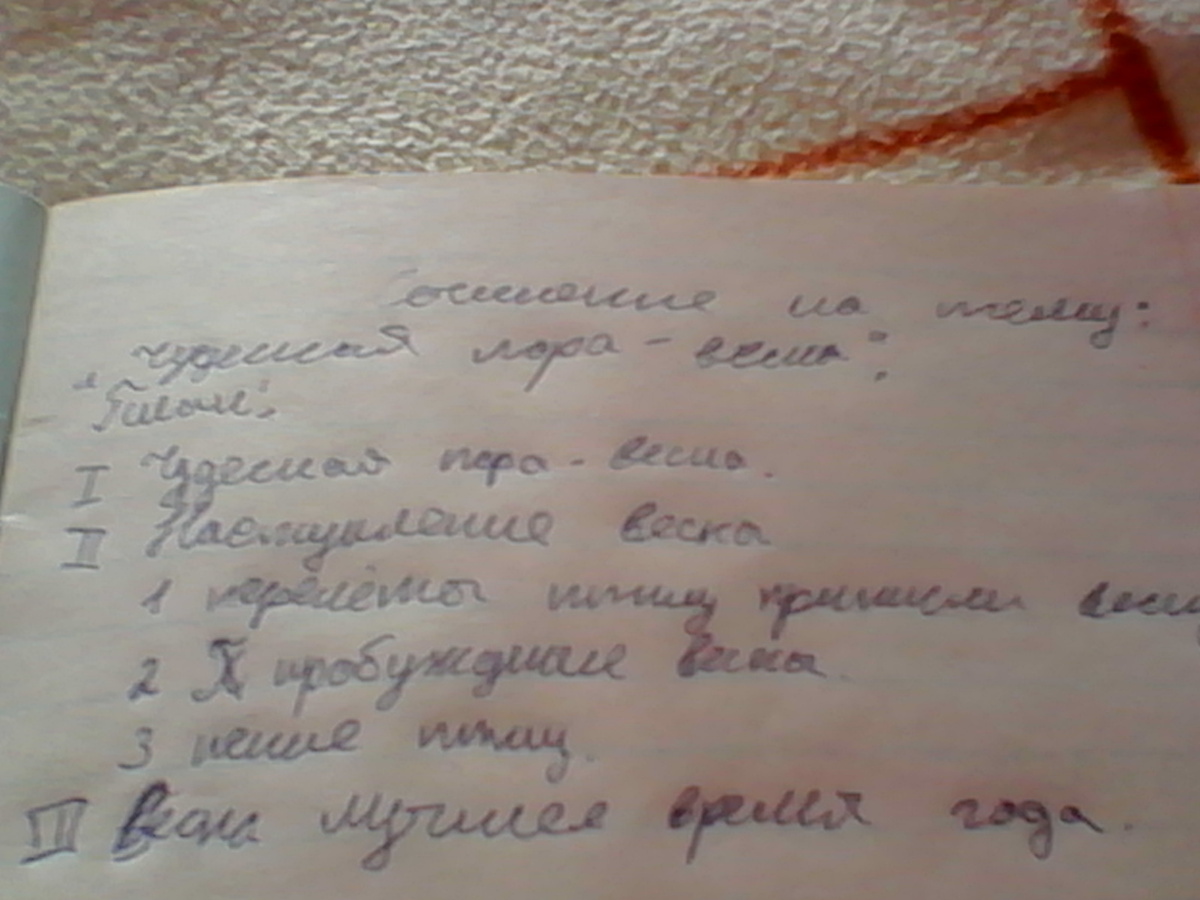 Сочинение на тему:
"Чудесная пора - весна":
План:
I Чудесная пора - весна.
II Наступление весна
1 перелёты птиц
2 пробуждение весна.
3 пение птиц.
III Весна лучшее время года.